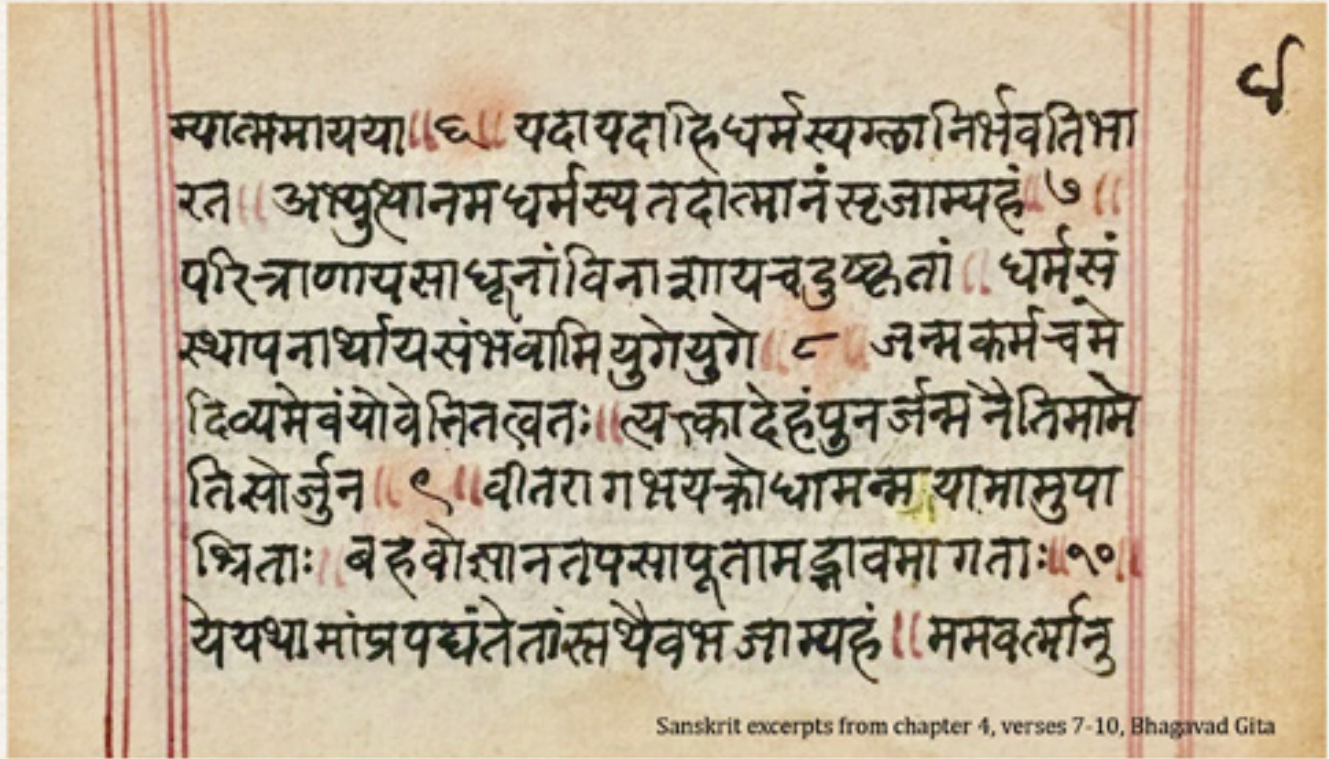 ४
म्यात्ममायया॥६॥यदायदाहिधर्मस्यग्लानिर्भवतिभा
रत॥अभ्युत्थानमधर्मस्यतदात्मानंसृजाम्यहं॥७॥
परित्राणायसाधूनांविनाशायचदुष्कृतां॥धर्मसं
स्थापनार्थायसंभवामियुगेयुगे॥८॥जन्मकर्मचमे
दिव्यमेवंयोवेत्तितत्वतः॥त्यक्त्कादेहंपुनर्जन्मनैतिमामे
तिसोर्जुन॥९॥वीतरागभयक्रोधामन्मयामामुपा
श्रिताः॥बहवोज्ञानतपसापूतामद्भावमागताः॥१०॥
येयथामांप्रपद्यंतेतांस्तथैवभजाम्यहं॥ममवर्त्मानु
Sanskrit excerpts from chapter 4, verses 7-10, Bhagavad Gita